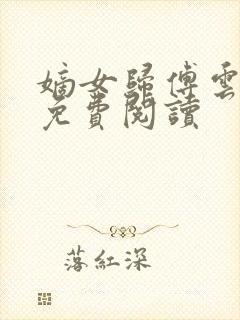 嫡女歸傅雲
免費閱讀
落紅深